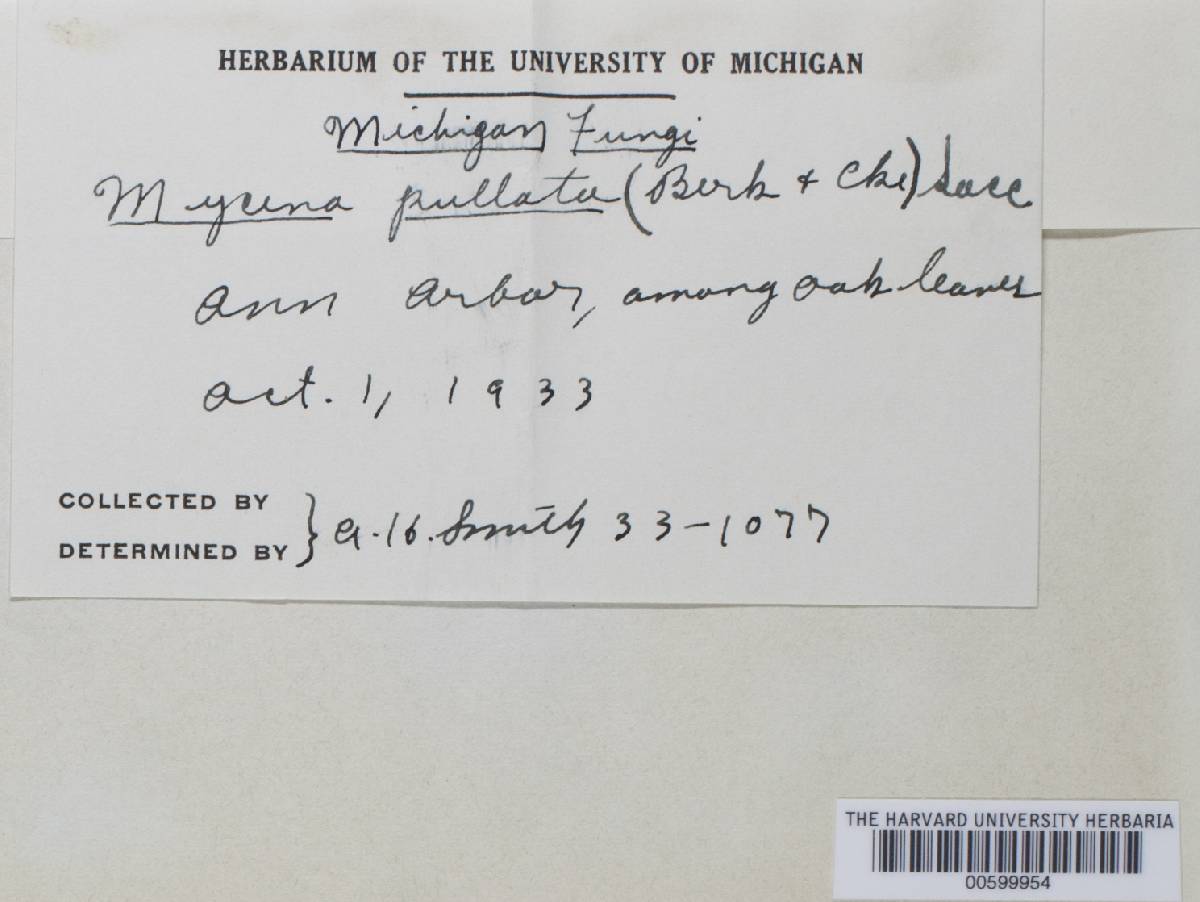 HERBARIUM OF THE UNIVERSITY OF MICHIGAN
Michigan Fungi
Mycena pullata (Berk & Cke) Sacc
Ann Arbor, among oak leaves
Oct. 1, 1933
COLLECTED BY
DETERMINED BY } A.H. Smith 33-1077
THE HARVARD UNIVERSITY HERBARIA
00599954